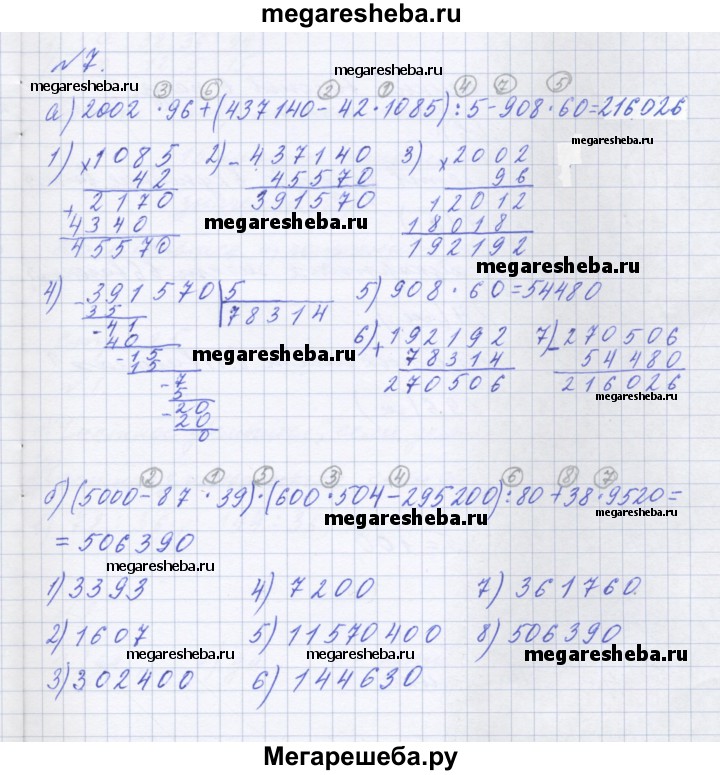 megaresheba.ru
№7.
megaresheba.ru
megaresheba.ru
③ ⑥ ② ① ④ ⑦ ⑤
а) 2002 · 96 + (437140 - 42 · 1085) : 5 - 908 · 60 = 216026
megaresheba.ru
1) × 1085
42
+ 2170
4340
45570
2) - 437140
45570
391570
3) × 2002
96
12012
18018
192192
megaresheba.ru
megaresheba.ru
4) - 391570 | 5
35 78314
- 41
40
- 15
15
- 7
5
- 20
- 20
0
megaresheba.ru
5) 908 · 60 = 54480
6) + 192192
78314
270506
7) - 270506
54480
216026
megaresheba.ru
② ① ⑤ ③ ④ ⑥ ⑧ ⑦
б) (5000 - 87 · 39) · (600 · 504 - 295200) : 80 + 38 · 9520 =
megaresheba.ru
megaresheba.ru
= 506390
megaresheba.ru
1) 3393 4) 7200 7) 361760
2) 1607 5) 11570400 8) 506390
megaresheba.ru megaresheba.ru megaresheba.ru
3) 302400 6) 144630
Мегарешеба.ру